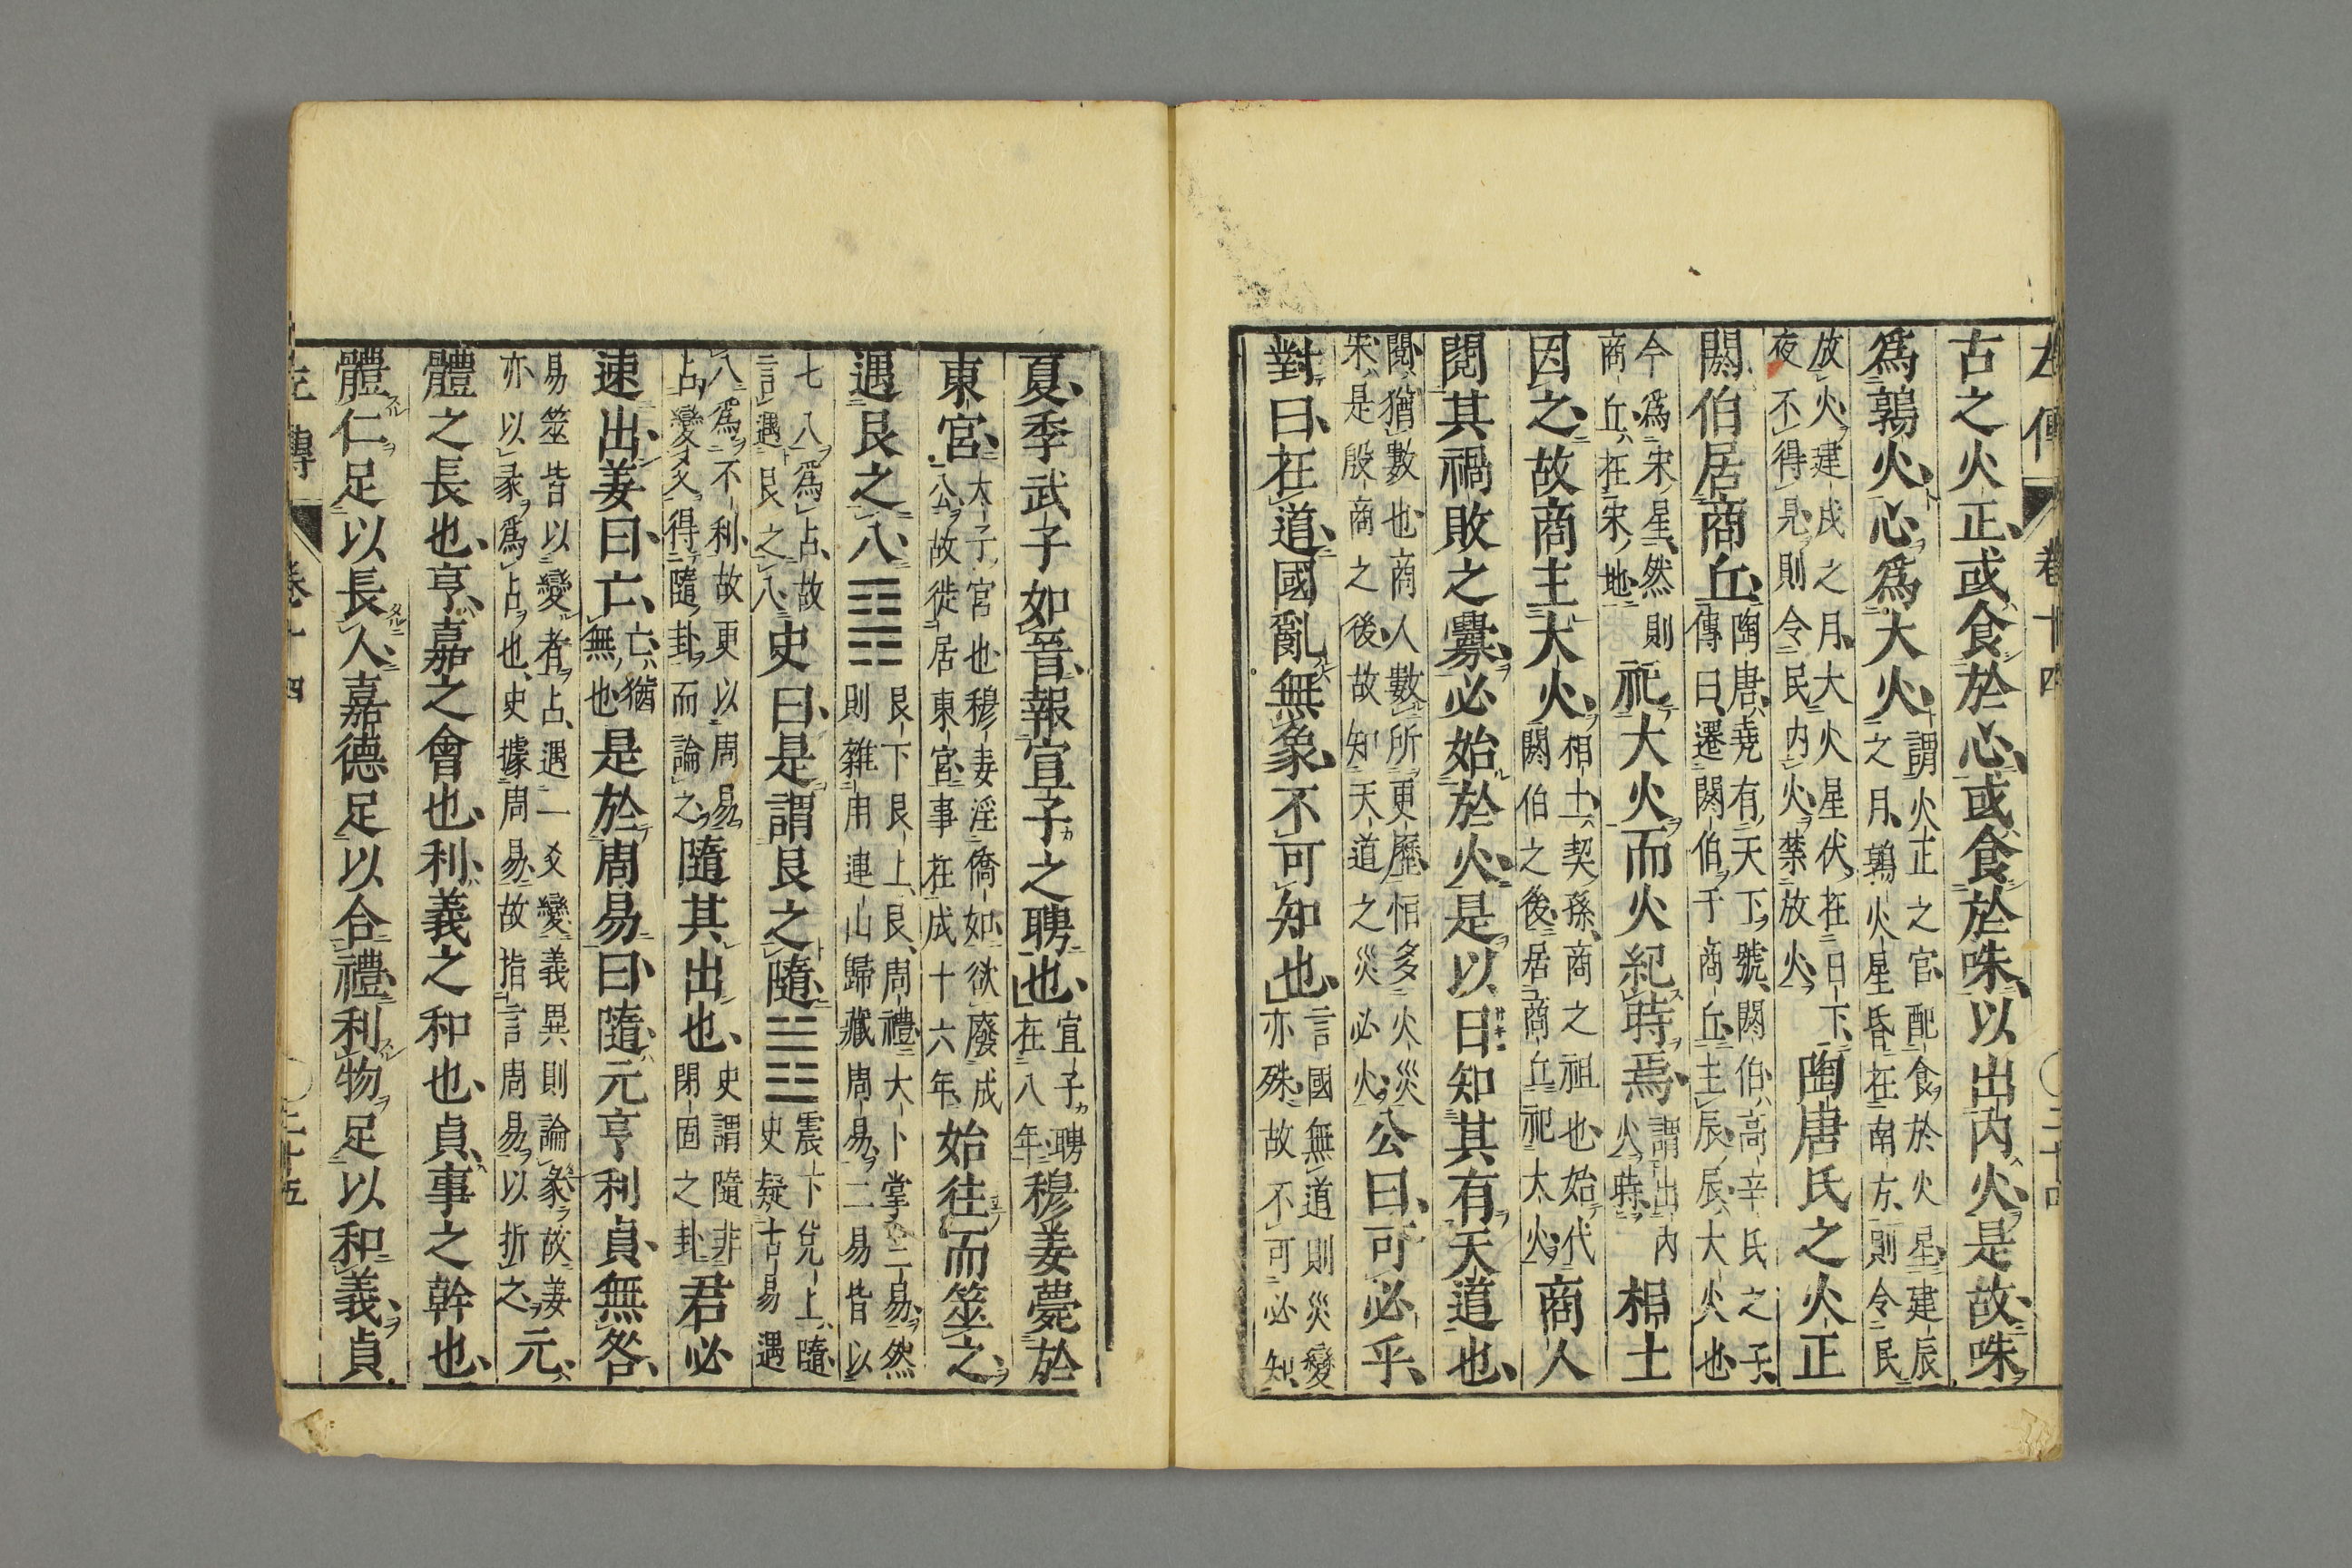 左傳 卷十四 二十四
古之火正或食於心或食於咮以出内火是故咮
爲鶉火心爲大火謂火正之官配食於火星建辰之月鶉火星昏在南方則令民
放火建戌之月大火星伏在日下夜不得見則令民内火禁放火陶唐氏之火正
閼伯居商丘陶唐堯有天下號閼伯高辛氏之子傳曰遷閼伯于商丘主辰辰大火也
今爲宋星然則商丘在宋地祀大火而火紀時焉謂出内火時相土
因之故商主大火相土契孫商之祖也始代閼伯之後居商丘祀大火商人
閱其禍敗之釁必始於火是以日知其有天道也
閱猶數也商人數所更歷恒多火災宋是殷商之後故知天道之災必火公曰可必乎
對曰在道國亂無象不可知也言國無道則災變亦殊故不可必知
夏季武子如晉報宣子之聘也宣子聘在八年穆姜薨於
東宮太子宮也穆姜淫僑如欲廢成公故徙居東宮事在成十六年始往而筮之
遇艮之八䷳艮下艮上艮周禮大卜掌三易然則雜用連山歸藏周易二易皆以
七八爲占故言遇艮之八史曰是謂艮之隨䷐震下兌上隨史疑古易遇
八爲不利故更以周易占變爻得隨卦而論之隨其出也史謂隨非閉固之卦君必
速出姜曰亡亡猶無也是於周易曰隨元亨利貞無咎
易筮皆以變者占遇一爻變義異則論彖故姜亦以彖爲占也史據周易故指言周易以折之元
體之長也亨嘉之會也利義之和也貞事之幹也
體仁足以長人嘉德足以合禮利物足以和義貞
左傳 卷十四 二十五